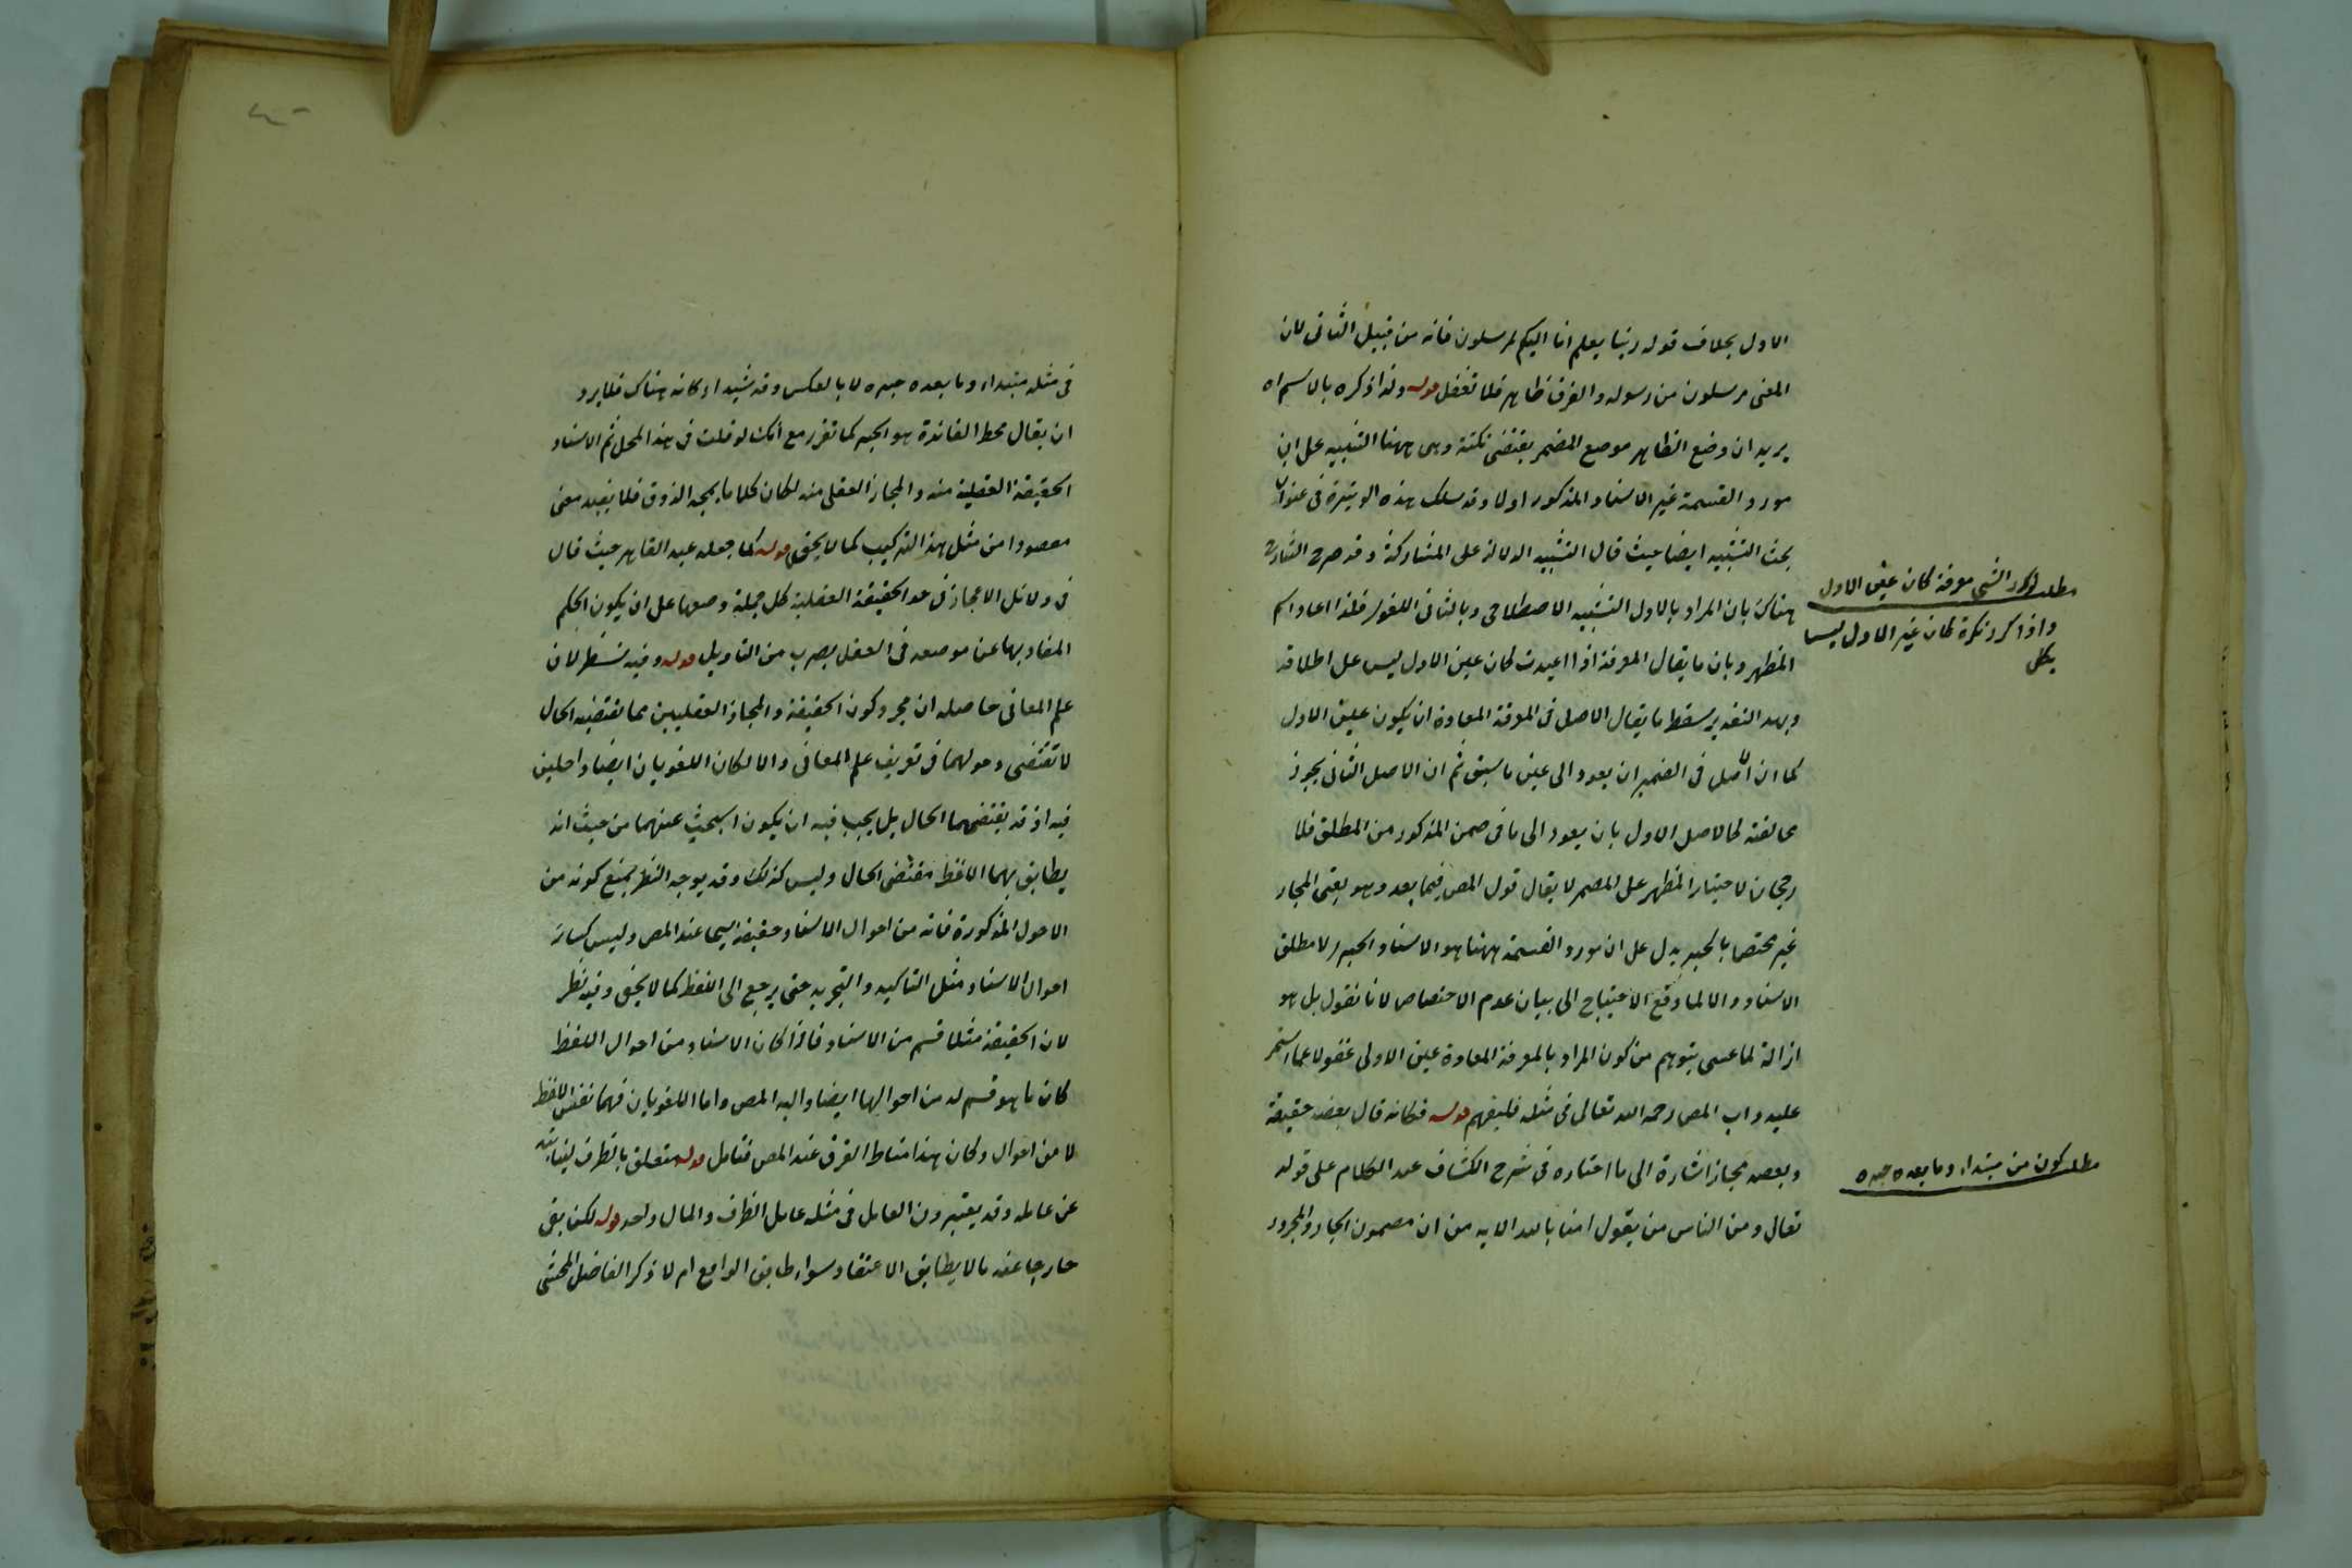 الاول بخلاف قوله ربنا يعلم انا اليكم لمرسلون فانه من قبيل الثاني لان
المعنى مرسلون من رسوله والفرق ظاهر فلا تغفل قوله ولذا ذكره بالاسم اه
يريد ان وضع الظاهر موضع المضمر يقتضى نكتة وهى ههنا التنبيه على ان
مورد القسمة غير الاسناد المذكور اولا وقد سلك هذه الوتيرة فى عنوان
بحث التشبيه ايضا حيث قال التشبيه الدلالة على المشاركة وقد صرح الشارح
هناك بان المراد بالاول التشبيه الاصطلاحى وبالثانى اللغوى فلذا اعاد اسم
المظهر وبان ما يقال المعرفة اذا اعيدت كان عين الاول ليس على اطلاقه
وبهذا التقدير سقط ما يقال الاصل فى المعرفة المعادة ان يكون عين الاول
كما ان الاصل فى الضمير ان يعود الى عين ما سبق ثم ان الاصل الثانى يجوز
مخالفته كالاصل الاول بان يعود الى ما فى ضمن المذكور من المطلق فلا
رجحان لاختيار المظهر على المضمر لا يقال قول المص فيما بعد وهو يعنى المجاز
غير مختص بالخبر يدل على ان مورد القسمة ههنا هو الاسناد الخبرى لا مطلق
الاسناد والا لما وقع الاحتياج الى بيان عدم الاختصاص لانا نقول بل هو
ازالة لما عسى يتوهم من كون المراد بالمعرفة المعادة عين الاولى غفولا عما استمر
عليه داب المص رحمه الله تعالى فى مثله فليفهم قوله فكانه قال بعضه حقيقة
وبعضه مجاز اشارة الى ما اختاره فى شرح الكشاف عند الكلام على قوله
تعالى ومن الناس من يقول امنا بالله الايه من ان مضمون الجار والمجرور
مطلب كرر الشئ معرفة كان عين الاول
واذا كرر نكرة كان غير الاول ليس
بكلى
مطلب كون من مبتداء وما بعده خبره
فى مثله مبتداء وما بعده خبره لا بالعكس وقد شيد اركانه هناك فلا يرد
ان يقال محط الفائدة هو الخبر كما تقرر مع أنك لو قلت فى هذا المحل ثم الاسناد
الحقيقة العقلية منه والمجاز العقلى منه لكان كلاما يمجه الذوق فلا يفيد معنى
مقصودا من مثل هذا التركيب كما لا يخفى قوله كما جعله عبد القاهر حيث قال
فى دلائل الاعجاز فى حد الحقيقة العقلية كل جملة وضعها على ان يكون الحكم
المفاد بها عن موضعه فى العقل بضرب من التاويل قوله وفيه نظر لان
علم المعانى حاصله ان مجرد كون الحقيقة والمجاز العقليين مما تقتضيه الحال
لا تقتضى دخولهما فى تعريف علم المعانى والا لكان اللغويان ايضا داخلين
فيه اذ قد يقتضيهما الحال بل يجب فيه ان يكون البحث عنهما من حيث انه
يطابق بهما اللفظ مقتضى الحال وليس كذلك وقد يوجه النظر بمنع كونه من
الاحول المذكورة فانه من احوال الاسناد حقيقة سيما عند المص وليس كسائر
احوال الاسناد مثل التاكيد والتجريد حتى يرجع الى اللفظ كما لا يخفى وفيه نظر
لان الحقيقة مثلا قسم من الاسناد فاذا كان الاسناد من احوال اللفظ
كان ما هو قسم له من احوالها ايضا واليه المص واما اللغويان فهما نفس اللفظ
لا من احوال وكان هذا مناط الفرق عند المص فتامل قوله متعلق بالظرف لنيابته
عن عامله وقد يعتبرون العامل فى مثله عامل الظرف والمال واحد قوله لكن بقى
خارجا عنه مالا يطابق الاعتقاد سواء طابق الواقع ام لا ذكر الفاضل المحشى